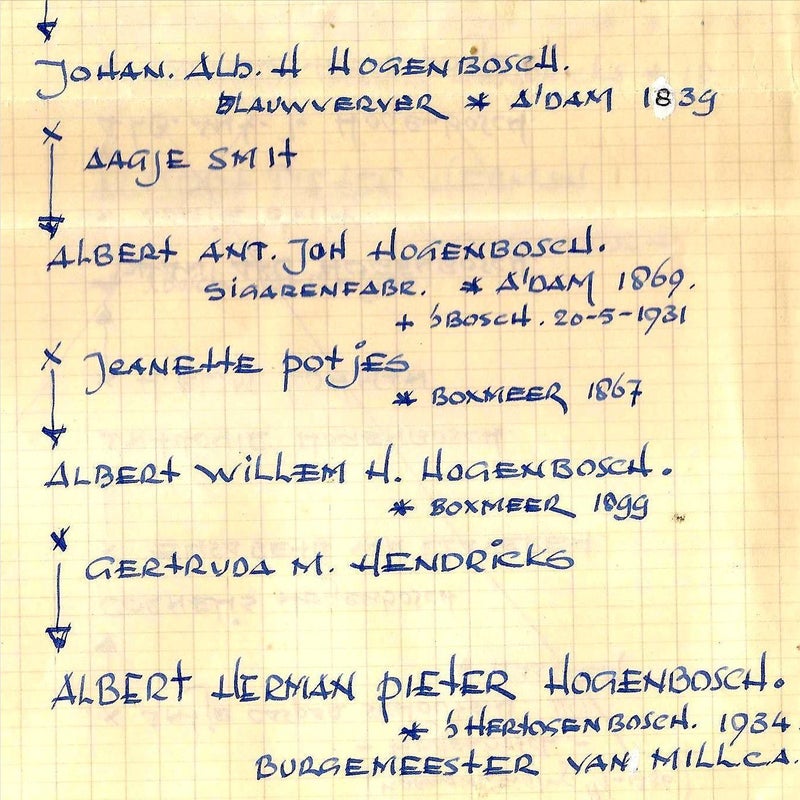 JOHAN. ALB. H HOGENBOSCH.
BLAUWVERVER * A'DAM 1839
× AAGJE SMIT
ALBERT ANT. JOH HOGENBOSCH.
SIGARENFABR. * A'DAM 1869.
+ 'sBOSCH. 20-5-1931
× JEANETTE POTJES
* BOXMEER 1867
ALBERT WILLEM H. HOGENBOSCH.
* BOXMEER 1899
× GERTRUDA M. HENDRICKS
ALBERT HERMAN PIETER HOGENBOSCH.
* 'sHERTOGENBOSCH. 1934.
BURGEMEESTER VAN MILL C.A.